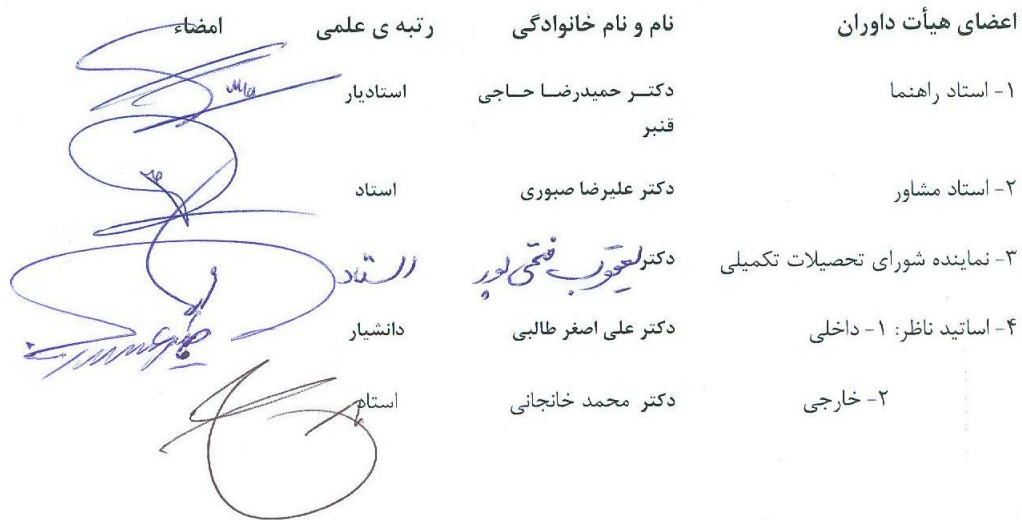 اعضای هیأت داوران نام و نام خانوادگی رتبه ی علمی امضاء
۱- استاد راهنما دکتـر حمیدرضـا حـاجی استادیار
قنبر
۲- استاد مشاور دکتر علیرضا صبوری استاد
۳- نماینده شورای تحصیلات تکمیلی دکتر یعقوب فتحی پور استاد
۴- اساتید ناظر: ۱- داخلی دکتر علی اصغر طالبی دانشیار
۲- خارجی دکتر محمد خانجانی استاد